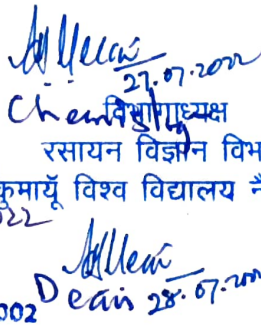 27.07.2022
Chemistry
विभागाध्यक्ष
रसायन विज्ञान विभ
कुमायूँ विश्व विद्यालय नै
22
Dean 28.07.2022
002